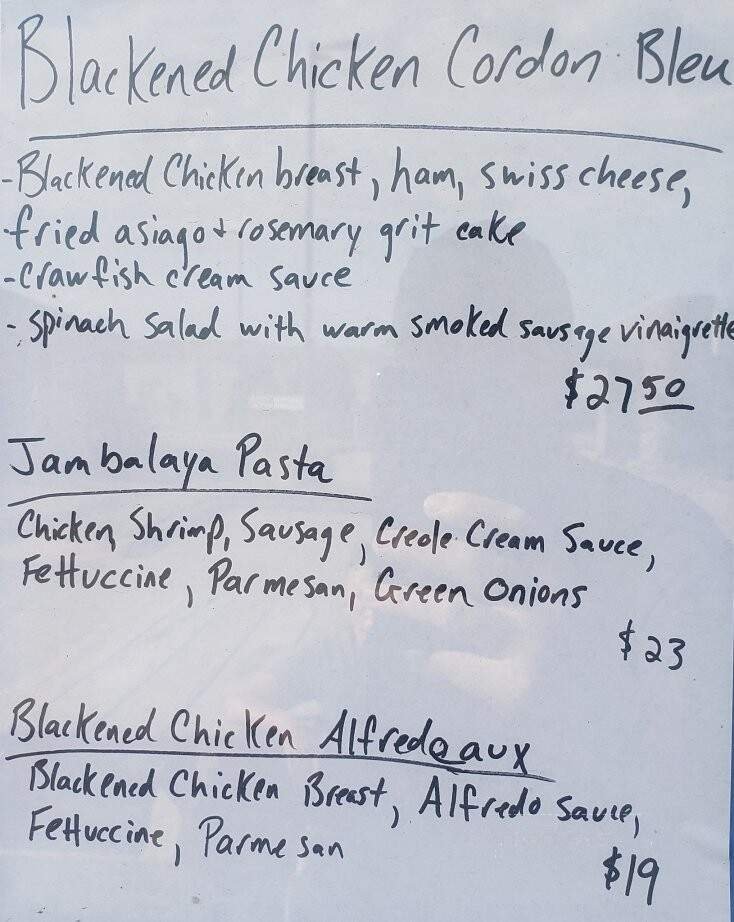 Blackened Chicken Cordon Bleu
-Blackened Chicken breast, ham, swiss cheese,
fried asiago + rosemary grit cake
-Crawfish cream sauce
- Spinach Salad with warm smoked sausage vinaigrette
$27 50
Jambalaya Pasta
Chicken, Shrimp, Sausage, Creole Cream Sauce,
Fettuccine, Parmesan, Green Onions
$23
Blackened Chicken Alfredeaux
Blackened Chicken Breast, Alfredo Sauce,
Fettuccine, Parmesan
$19